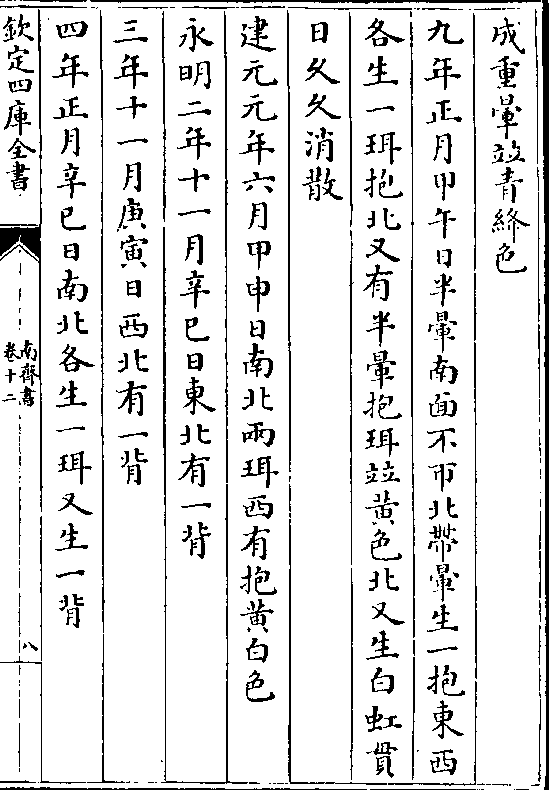 成重暈竝青絳色
九年正月甲午日半暈南面不帀北帶暈生一抱東西
各生一珥抱北又有半暈抱珥竝黃色北又生白虹貫
日久久消散
建元元年六月甲申日南北兩珥西有抱黃白色
永明二年十一月辛巳日東北有一背
三年十一月庚寅日西北有一背
四年正月辛巳日南北各生一珥又生一背
欽定四庫全書
南齊書
卷十二
八